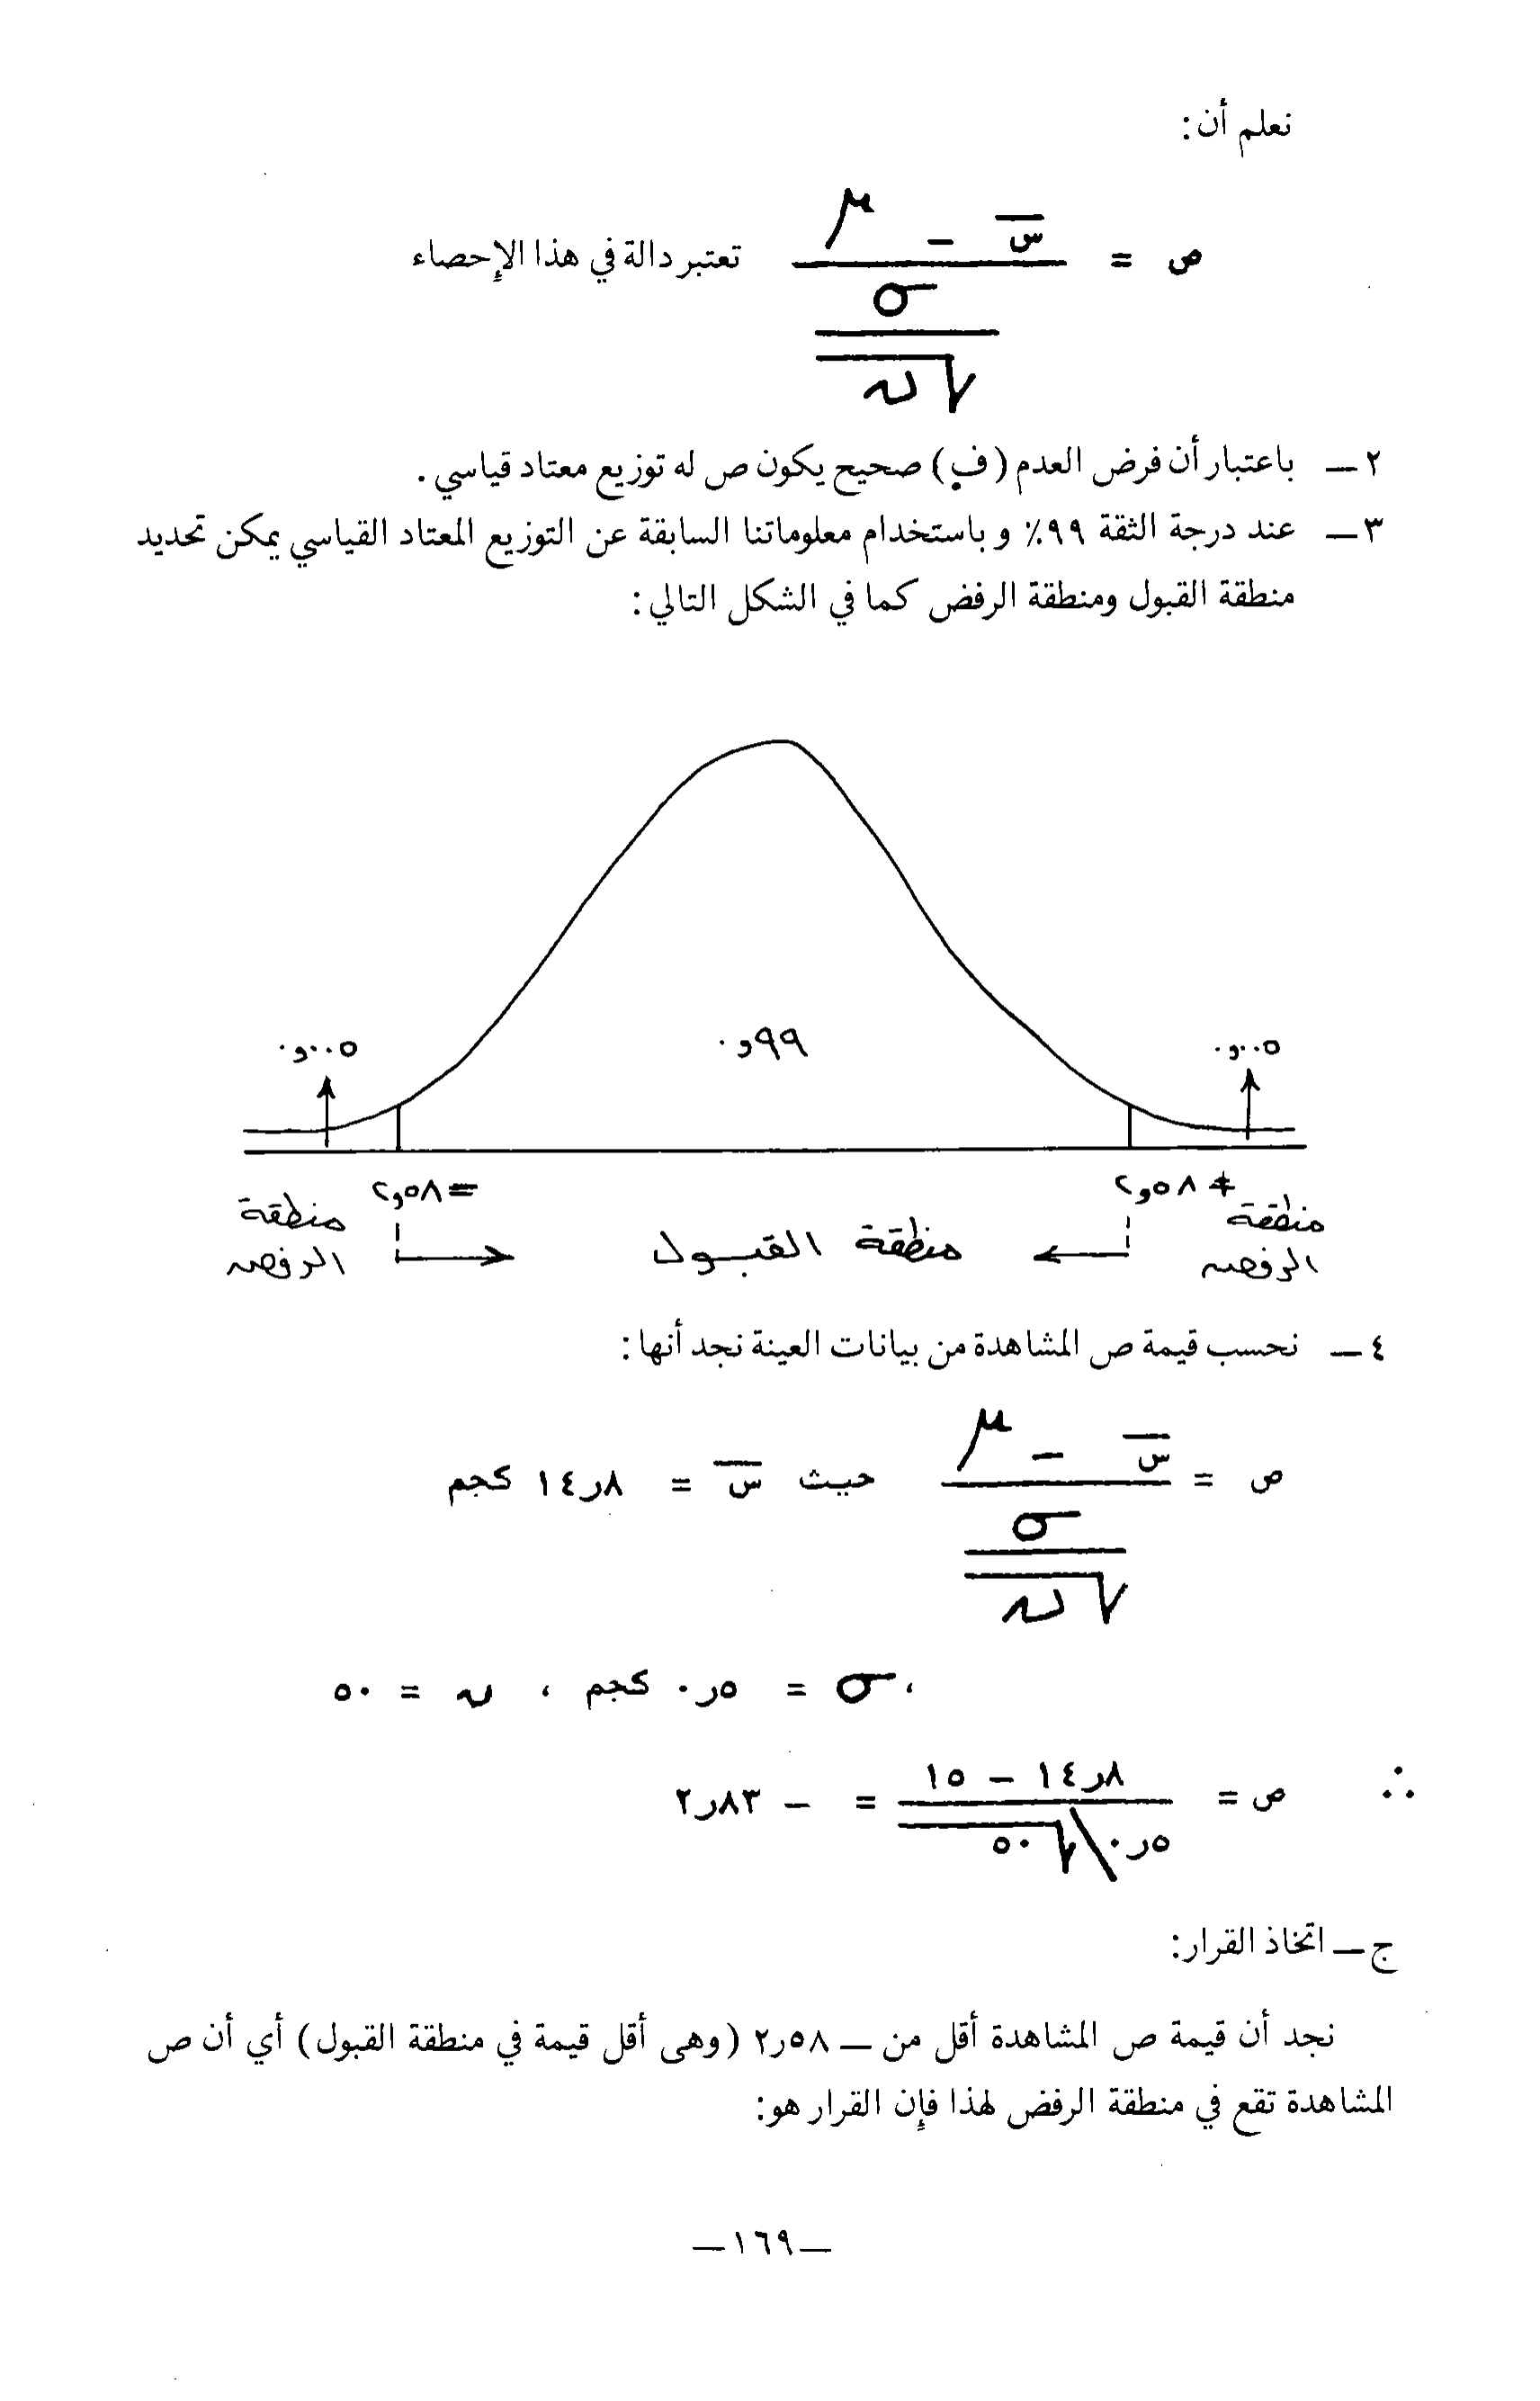 نعلم أن:
ص = (س̄ − μ) / (σ / √ن) تعتبر دالة في هذا الإحصاء
٢ — باعتبار أن فرض العدم (ف.) صحيح يكون ص له توزيع معتاد قياسي.
٣ — عند درجة الثقة ٩٩٪ وباستخدام معلوماتنا السابقة عن التوزيع المعتاد القياسي يمكن تحديد
منطقة القبول ومنطقة الرفض كما في الشكل التالي:
٠٠٥و٠
٩٩و٠
٠٠٥و٠
+ ٥٨و٢
= ٥٨و٢
منطقة
الرفض
منطقة القبول
منطقة
الرفض
٤ — نحسب قيمة ص المشاهدة من بيانات العينة نجد أنها:
ص = (س̄ − μ) / (σ / √ن) حيث س̄ = ٨ر١٤ كجم
، σ = ٥ر٠ كجم ، ن = ٥٠
∴ ص = (٨ر١٤ − ١٥) / (٥ر٠ \ √٥٠) = − ٨٣ر٢
ج — اتخاذ القرار:
نجد أن قيمة ص المشاهدة أقل من — ٥٨ر٢ (وهى أقل قيمة في منطقة القبول) أي أن ص
المشاهدة تقع في منطقة الرفض لهذا فإن القرار هو:
— ١٦٩ —